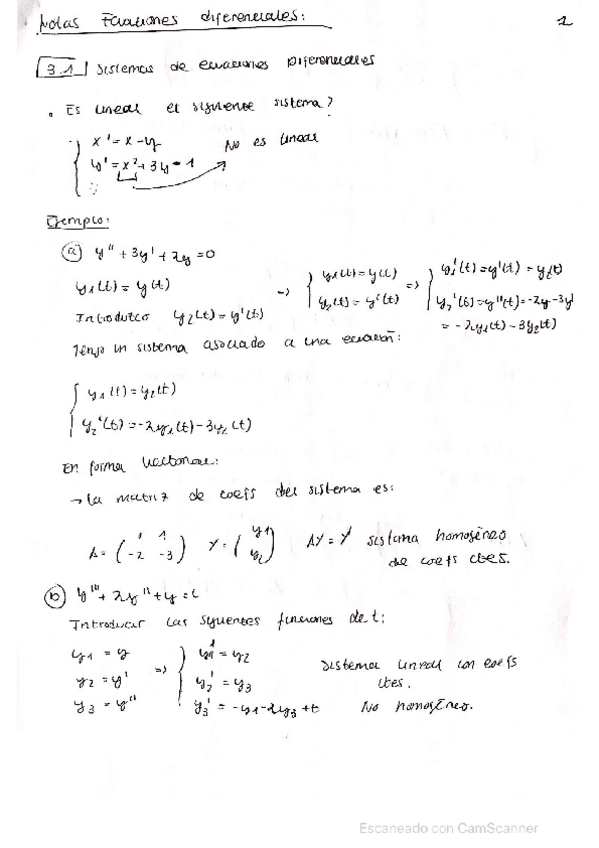 Notas Ecuaciones diferenciales: 1
3.1 Sistemas de ecuaciones Diferenciales
. Es lineal el siguiente sistema?
x' = x - y No es lineal
y' = x² + 3y - 1
Ejemplo:
(a) y'' + 3y' + 2y = 0
y1(t) = y(t) => { y1(t) = y(t) => { y1'(t) = y'(t) = y2(t)
Introduzco y2(t) = y'(t) y2(t) = y'(t) y2'(t) = y''(t) = -2y - 3y'
= -2y1(t) - 3y2(t)
Tengo un sistema asociado a una ecuación:
{ y1(t) = y2(t)
y2'(t) = -2y1(t) - 3y2(t)
En forma vectorial:
→ La matriz de coefs del sistema es:
A = ( 1 Y = ( y1 AY = Y' sistema homogéneo
-2 -3 ) y2 ) de coefs ctes.
(b) y''' + 2y'' + y = t
Introducir las siguientes funciones de t:
y1 = y => { y1' = y2 Sistema lineal con coefs
y2 = y' y2' = y3 ctes.
y3 = y'' y3' = -y1 - 2y3 + t No homogéneo.
Escaneado con CamScanner